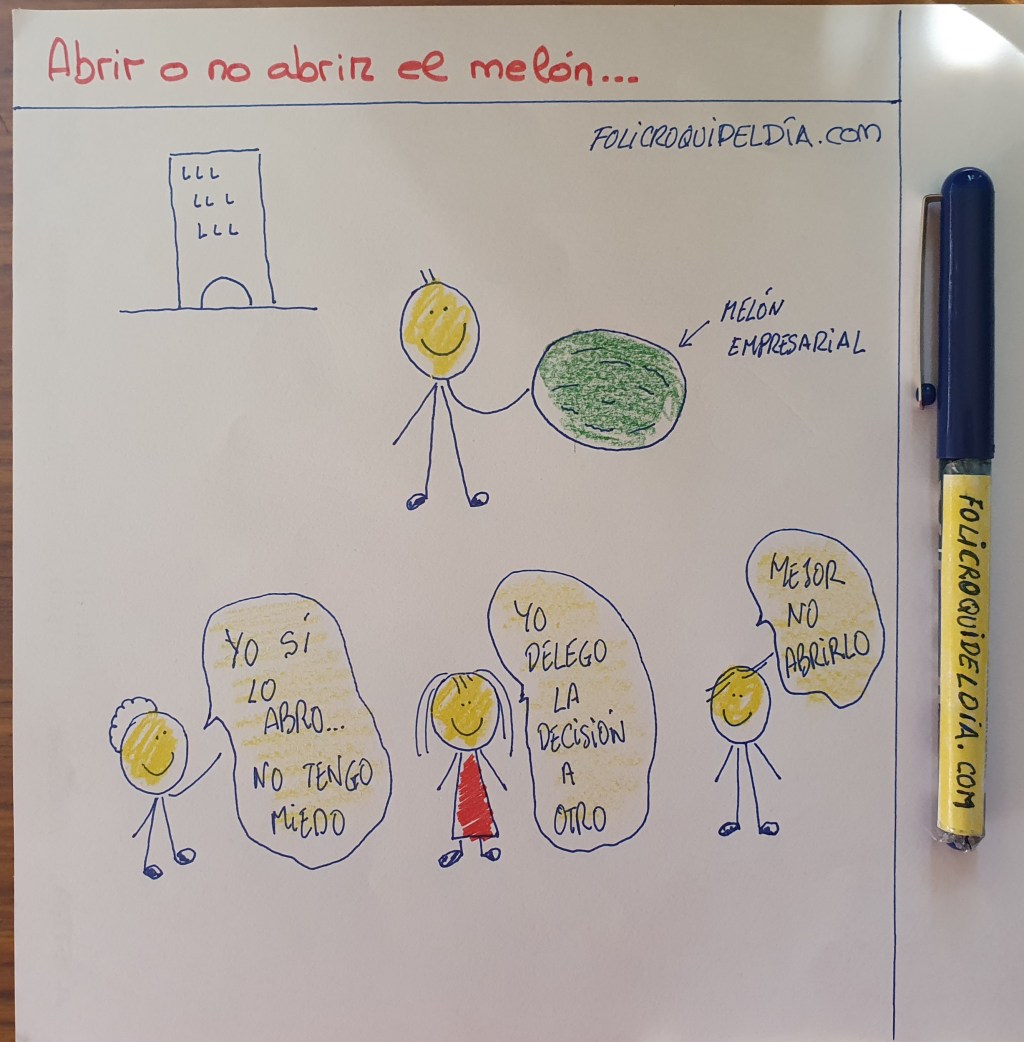 Abrir o no abrir el melón...
FOLICROQUIDELDÍA.com
LLL
LLL
LLL
MELÓN
EMPRESARIAL
YO SÍ
LO
ABRO...
NO TENGO
MIEDO
YO
DELEGO
LA
DECISIÓN
A
OTRO
MEJOR
NO
ABRIRLO
FOLICROQUIDELDÍA.COM